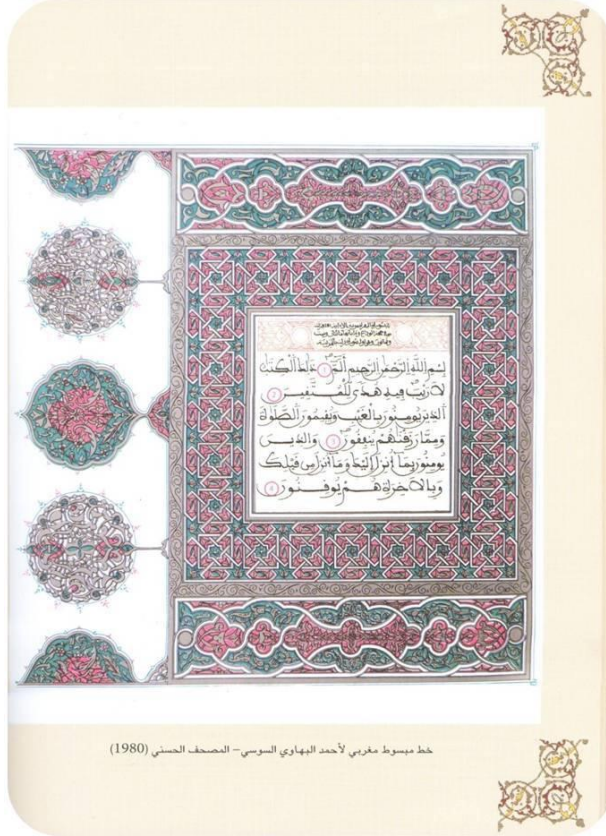 بِسْمِ اللَّهِ الرَّحْمَٰنِ الرَّحِيمِ أَلَمِّ ذَٰلِكَ الْكِتَٰبُ
لَا رَيْبَ فِيهِ هُدًى لِّلْمُتَّقِينَ
الَّذِينَ يُومِنُونَ بِالْغَيْبِ وَيُقِيمُونَ الصَّلَوٰةَ
وَمِمَّا رَزَقْنَٰهُمْ يُنفِقُونَ وَالَّذِينَ
يُومِنُونَ بِمَا أُنزِلَ إِلَيْكَ وَمَا أُنزِلَ مِن قَبْلِكَ
وَبِالْأَخِرَةِ هُمْ يُوقِنُونَ
خط مبسوط مغربي لأحمد البهاوي السوسي – المصحف الحسني (1980)